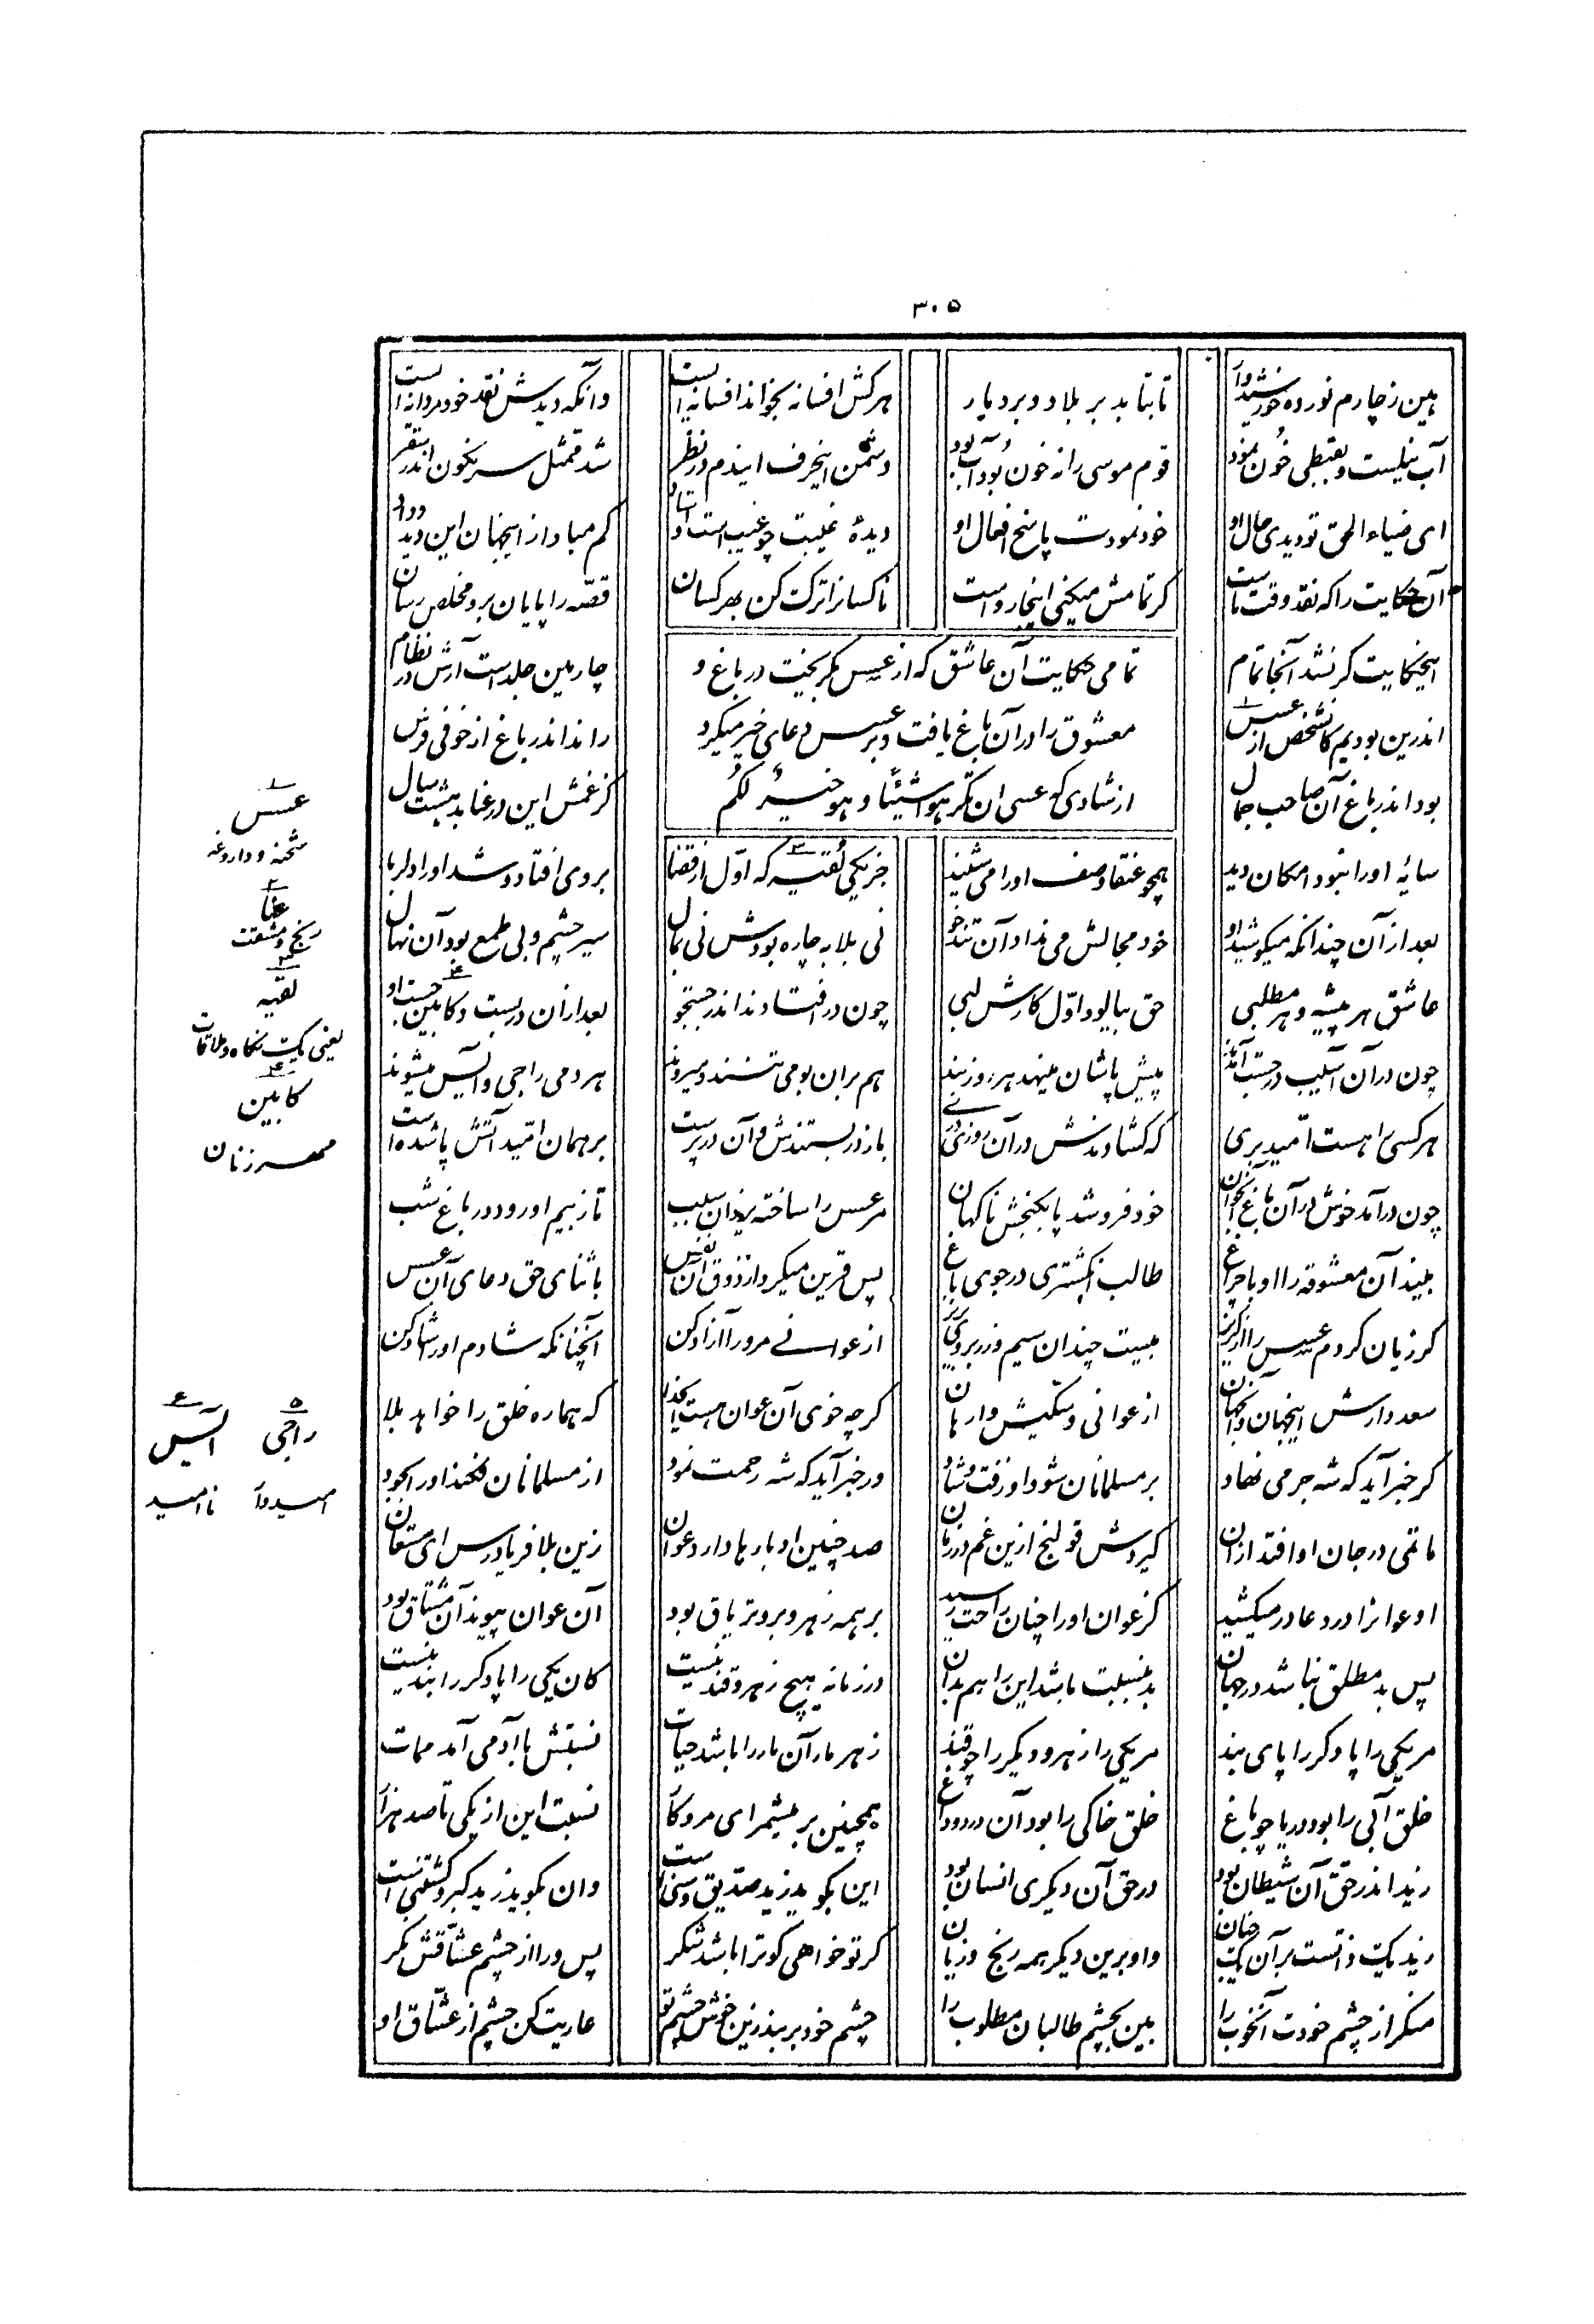 ۳۰۵
هین ز چارم نور ده خورشیدوار تا بتابد بر بلاد و بر دیار هر کش افسانه بخواند افسانه است وآنکه دیدش نقد خود مردانه است
آب نیلست و بقبطی خون نمود قوم موسی را نه خون بود آب بود دشمن اینحرف ایندم در نظر شد ممثل سرنگون اندر سقر
ای ضیاء الحق تو دیدی حال او خود نمودت پاسخ افعال او دیدهٔ غیبت چو غیب است اوستاد کم مبادا ز اینجهان این دید و داد
آن حکایت را که نقد وقت ماست گر تمامش میکنی اینجا رواست ناکسانرا ترک کن بهر کسان قصّه را پایان بر و مخلص رسان
اینحکایت گر نشد آنجا تمام چارمین جلد است آرش در نظام
تمامی حکایت آن عاشق که از عسس بگریخت در باغ و
معشوق را در آن باغ یافت و بر عسس دعای خیر میکرد
از شادی که عسی ان تکرهوا شیئًا و هو خیرٌ لکم
اندرین بودیم کانشخص از عسس راند اندر باغ از خوفی فرس
بود اندر باغ آن صاحب جمال کز غمش این در عنا بد هشت سال
سایهٔ او را نبود امکان دید همچو عنقا وصف او را می شنید جز یکی لقیه که اوّل از قضا بر وی افتاد و شد او را دلربا
بعد از آن چندانکه میکوشید او خود مجالش می نداد آن تندخو نی بلابه چاره بودش نی بمال سیر چشم و بی طمع بود آن نهال
عاشق هر پیشه و هر مطلبی حق بیالود اوّل کارش لبی چون در افتادند اندر جستجو بعد ازان در بست و کابین جست او
چون در آن آسیب در جست آمدند پیش پاشان مینهد هر روز بند هم بر آن بو می تنند و میروند هر دمی راجی و آیس میشوند
هر کسی را هست امّید بری که گشادندش در آن روزی دری باز در بستندش و آن در پرست بر همان امّید آتش پا شده است
چون در آمد خوش در آن باغ آنجوان خود فرو شد پا بگنجش ناگهان مر عسس را ساخته یزدان سبب تا ز بیم او رود در باغ شب
بیند آن معشوقه را او با چراغ طالب انگشتری در جوی باغ پس قرین میکرد از ذوق آن نفس با ثنای حق دعای آن عسس
گر زیان کردم عسس را از گریز بیست چندان سیم و زر بر وی بریز از عوانی مر ورا آزاد کن آنچنانکه شادم او را شاد کن
سعد دارش اینجهان و آنجهان از عوانی و سگیش وارهان گر چه خوی آن عوان هست ایخدا که هماره خلق را خواهد بلا
گر خبر آید که شه جرمی نهاد بر مسلمانان شود او زفت و شاد ور خبر آید که شه رحمت نمود از مسلمانان فکند او را بجود
ماتمی در جان او افتد از آن گیردش قولنج ازین غم در زمان صد چنین ادبارها دارد عوان زین بلا فریاد رس ای مستعان
او عوانرا در دعا در میکشید کز عوان او را چنان راحت رسید بر همه زهر و برو تریاق بود آن عوان پیوند آن مشتاق بود
پس بد مطلق نباشد در جهان بد بنسبت باشد این را هم بدان در زمانه هیچ زهر و قند نیست کان یکی را پا دگر را بند نیست
مر یکی را پا دگر را پای بند مر یکی را زهر و دیگر را چو قند زهر مار آن مار را باشد حیات نسبتش با آدمی آمد ممات
خلق آبی را بود دریا چو باغ خلق خاکی را بود آن درد و داغ همچنین بر میشمر ای مرد کار نسبت این از یکی تا صد هزار
زید اندر حقّ آن شیطان بود در حق آن دیگری انسان بود این بگوید زید صدّیق و سنی است وان بگوید زید گبر و کشتنی است
زید یک ذاتست بر آن یک جنان و او برین دیگر همه رنج و زیان گر تو خواهی کو ترا باشد شکر پس ورا از چشم عشّاقش نگر
منگر از چشم خودت آنخوب را بین بچشم طالبان مطلوب را چشم خود بر بند زین خوش چشم تو عاریت کن چشم از عشّاق او
۱
عسس
شحنه و داروغه
۲
عنا
رنج و مشقت
۳
لقیه
یعنی یک نگاه و ملاقات
۴
کابین
مهر زنان
۵
راجی
امیدوار
۶
آیس
ناامید